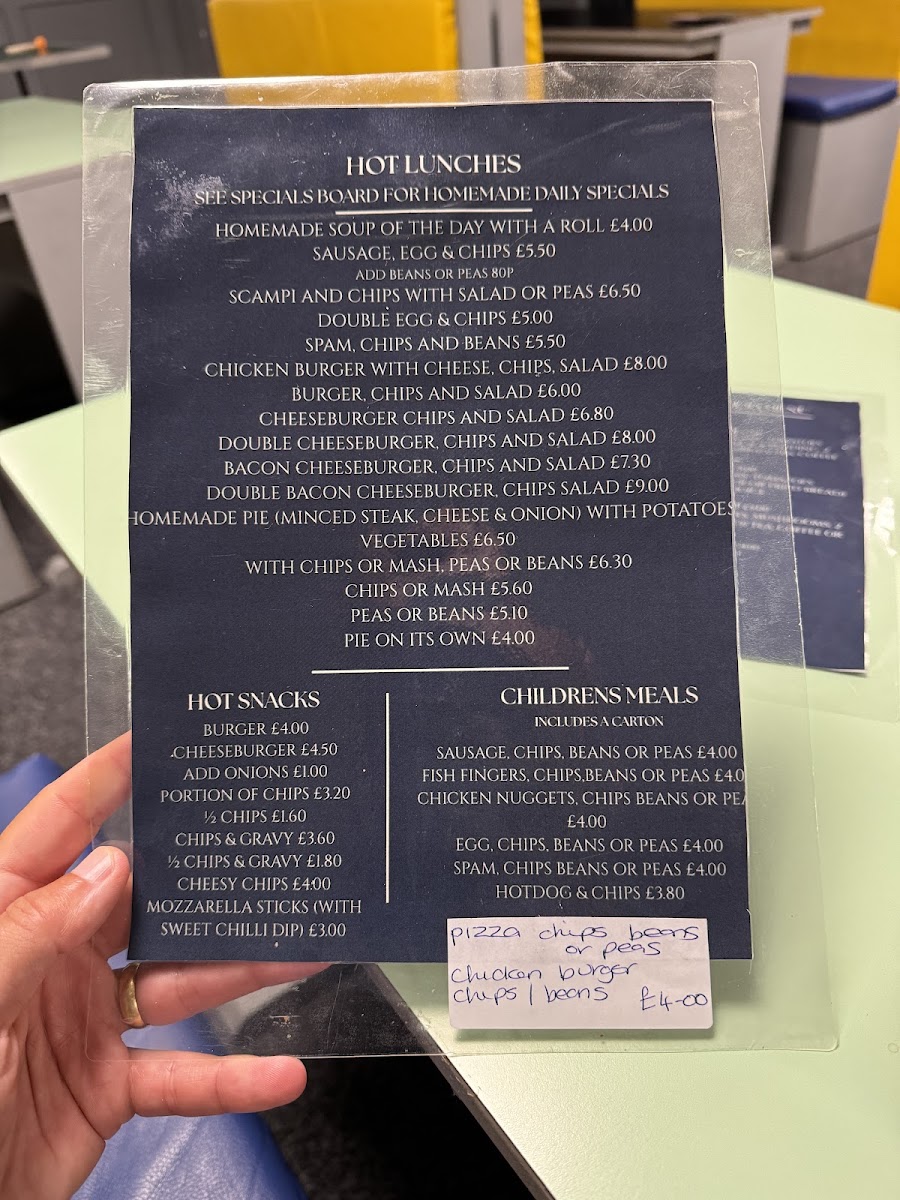 HOT LUNCHES
SEE SPECIALS BOARD FOR HOMEMADE DAILY SPECIALS
HOMEMADE SOUP OF THE DAY WITH A ROLL £4.00
SAUSAGE, EGG & CHIPS £5.50
ADD BEANS OR PEAS 80P
SCAMPI AND CHIPS WITH SALAD OR PEAS £6.50
DOUBLE EGG & CHIPS £5.00
SPAM, CHIPS AND BEANS £5.50
CHICKEN BURGER WITH CHEESE, CHIPS, SALAD £8.00
BURGER, CHIPS AND SALAD £6.00
CHEESEBURGER CHIPS AND SALAD £6.80
DOUBLE CHEESEBURGER, CHIPS AND SALAD £8.00
BACON CHEESEBURGER, CHIPS AND SALAD £7.30
DOUBLE BACON CHEESEBURGER, CHIPS SALAD £9.00
HOMEMADE PIE (MINCED STEAK, CHEESE & ONION) WITH POTATOES
VEGETABLES £6.50
WITH CHIPS OR MASH, PEAS OR BEANS £6.30
CHIPS OR MASH £5.60
PEAS OR BEANS £5.10
PIE ON ITS OWN £4.00
HOT SNACKS
BURGER £4.00
CHEESEBURGER £4.50
ADD ONIONS £1.00
PORTION OF CHIPS £3.20
½ CHIPS £1.60
CHIPS & GRAVY £3.60
½ CHIPS & GRAVY £1.80
CHEESY CHIPS £4.00
MOZZARELLA STICKS (WITH
SWEET CHILLI DIP) £3.00
CHILDRENS MEALS
INCLUDES A CARTON
SAUSAGE, CHIPS, BEANS OR PEAS £4.00
FISH FINGERS, CHIPS,BEANS OR PEAS £4.0
CHICKEN NUGGETS, CHIPS BEANS OR PEA
£4.00
EGG, CHIPS, BEANS OR PEAS £4.00
SPAM, CHIPS BEANS OR PEAS £4.00
HOTDOG & CHIPS £3.80
pizza chips beans
or peas
chicken burger
chips / beans £4-00